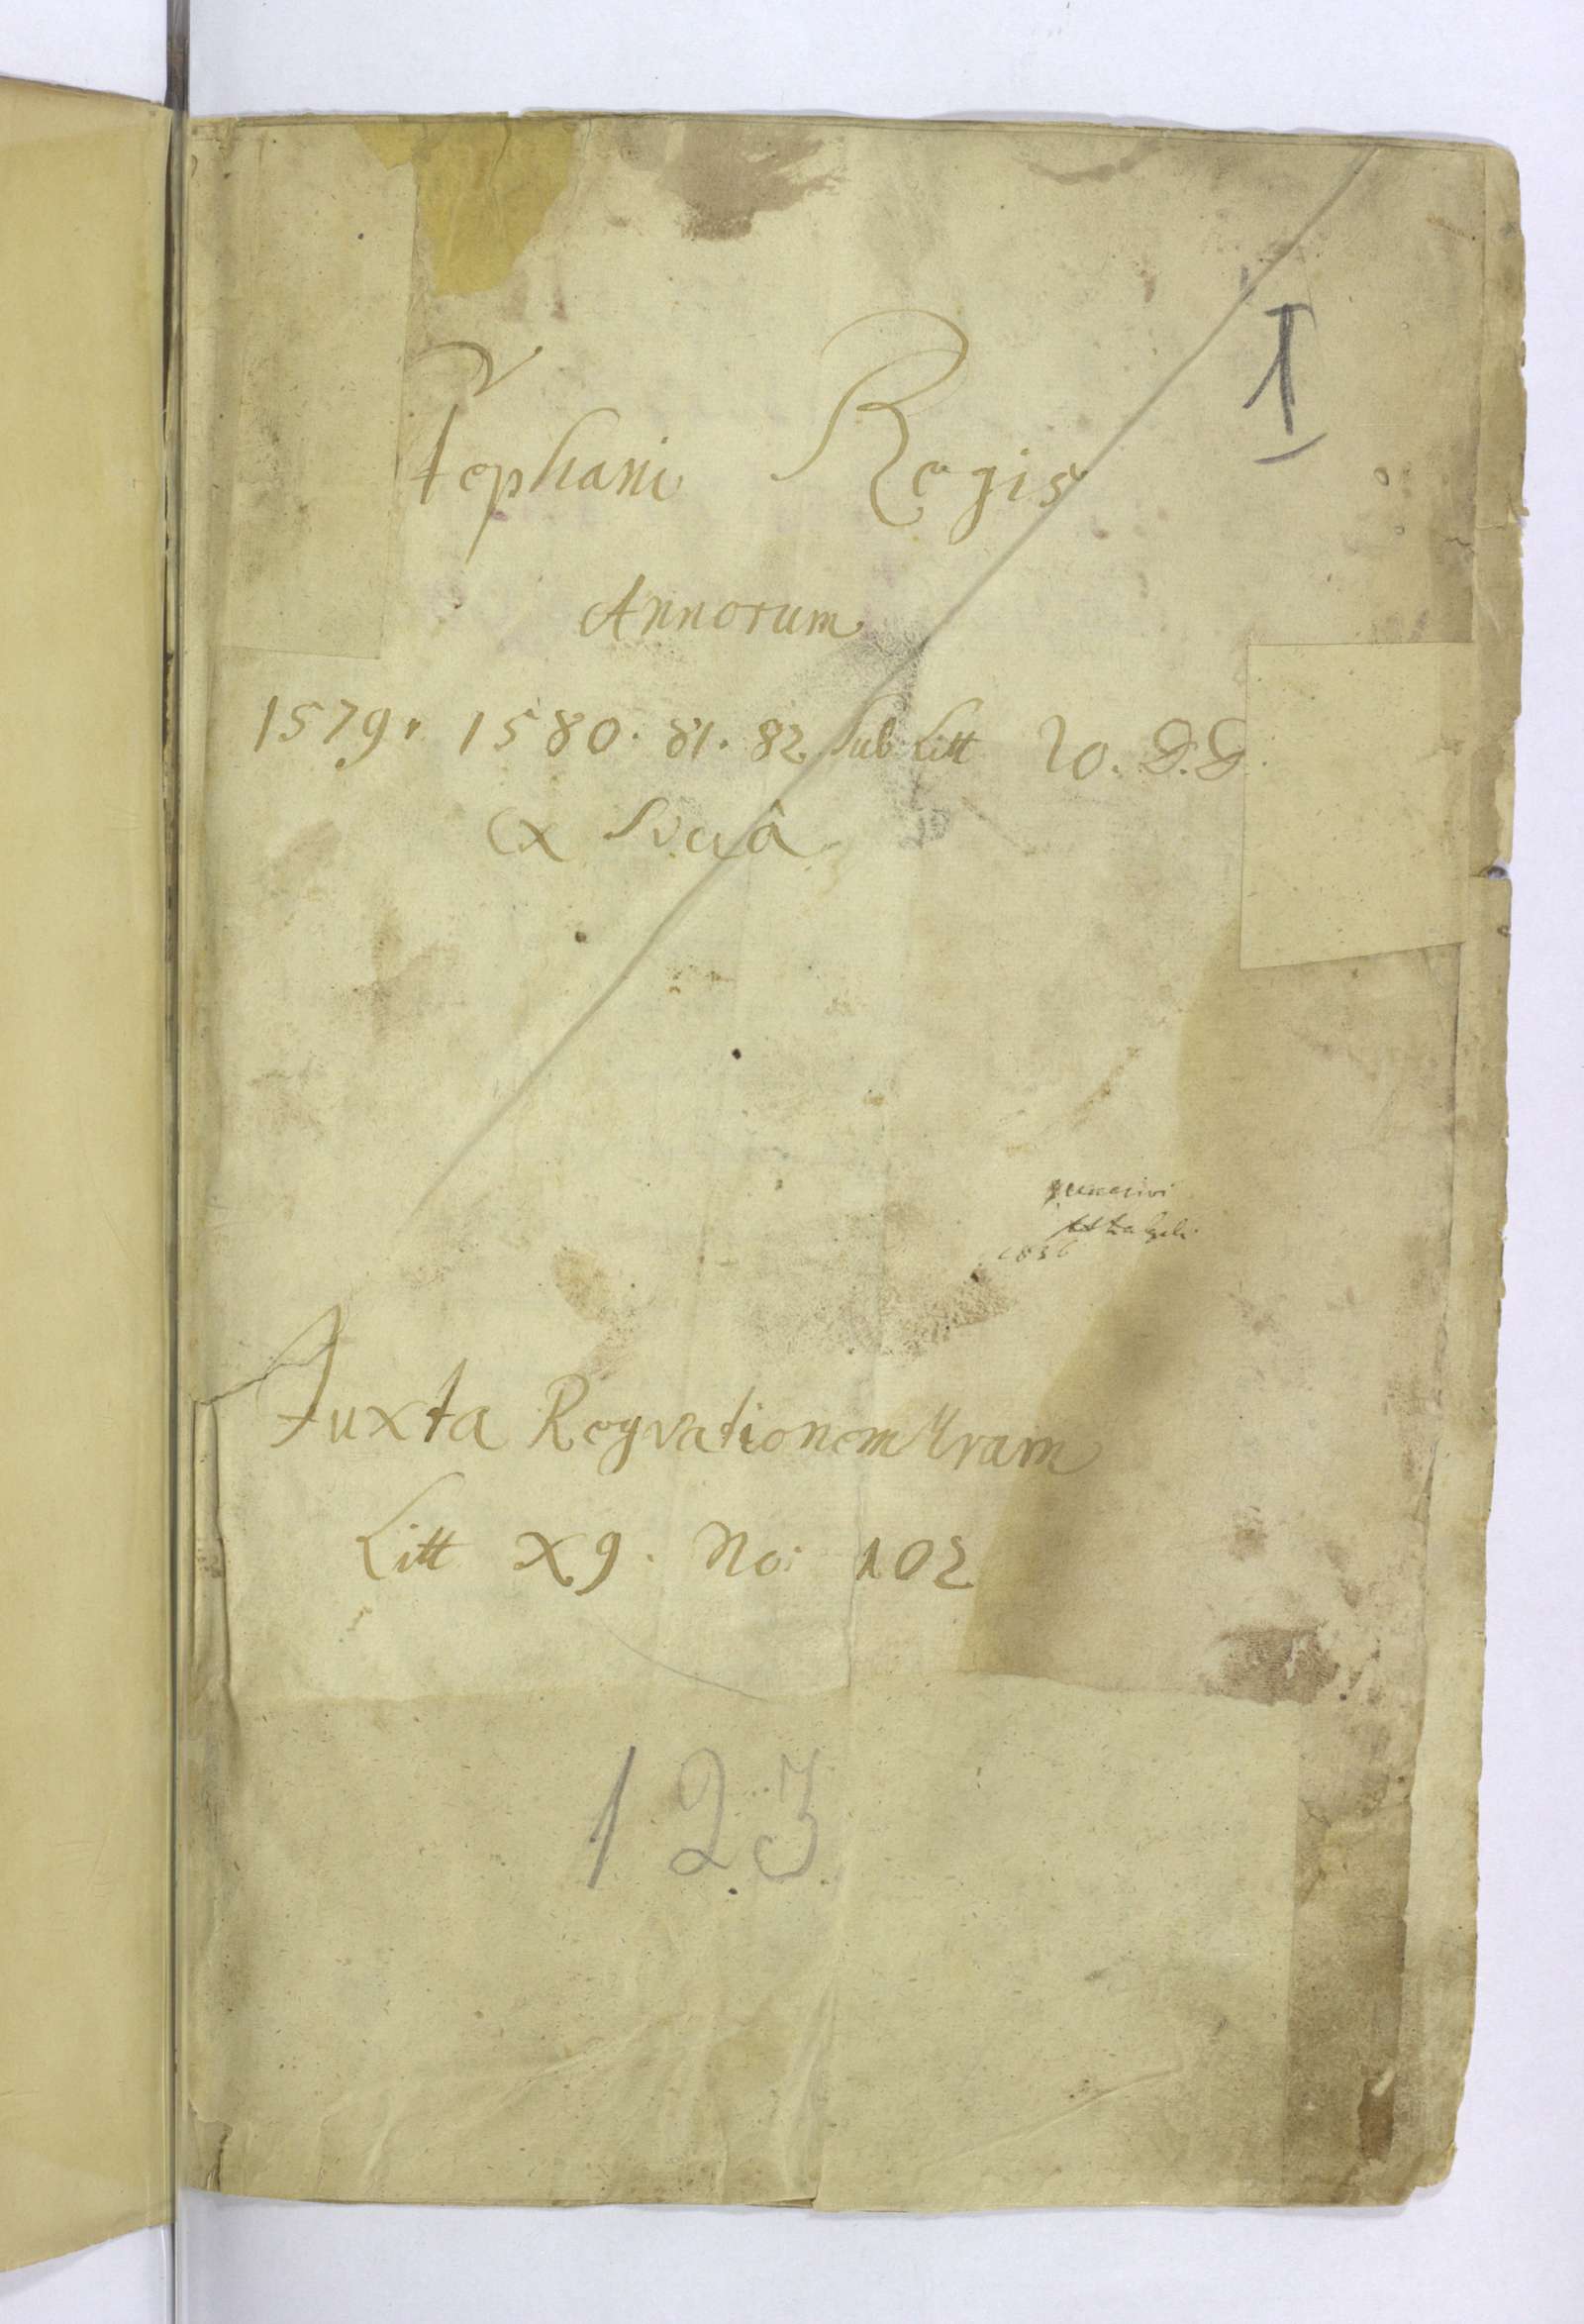 1
Stephani Regis
Annorum
1579. 1580. 81. 82 sub Litt W. D.D.
Ex Sveciâ
1836
Juxta Regvationem Vram
Litt X9. No: 102
123